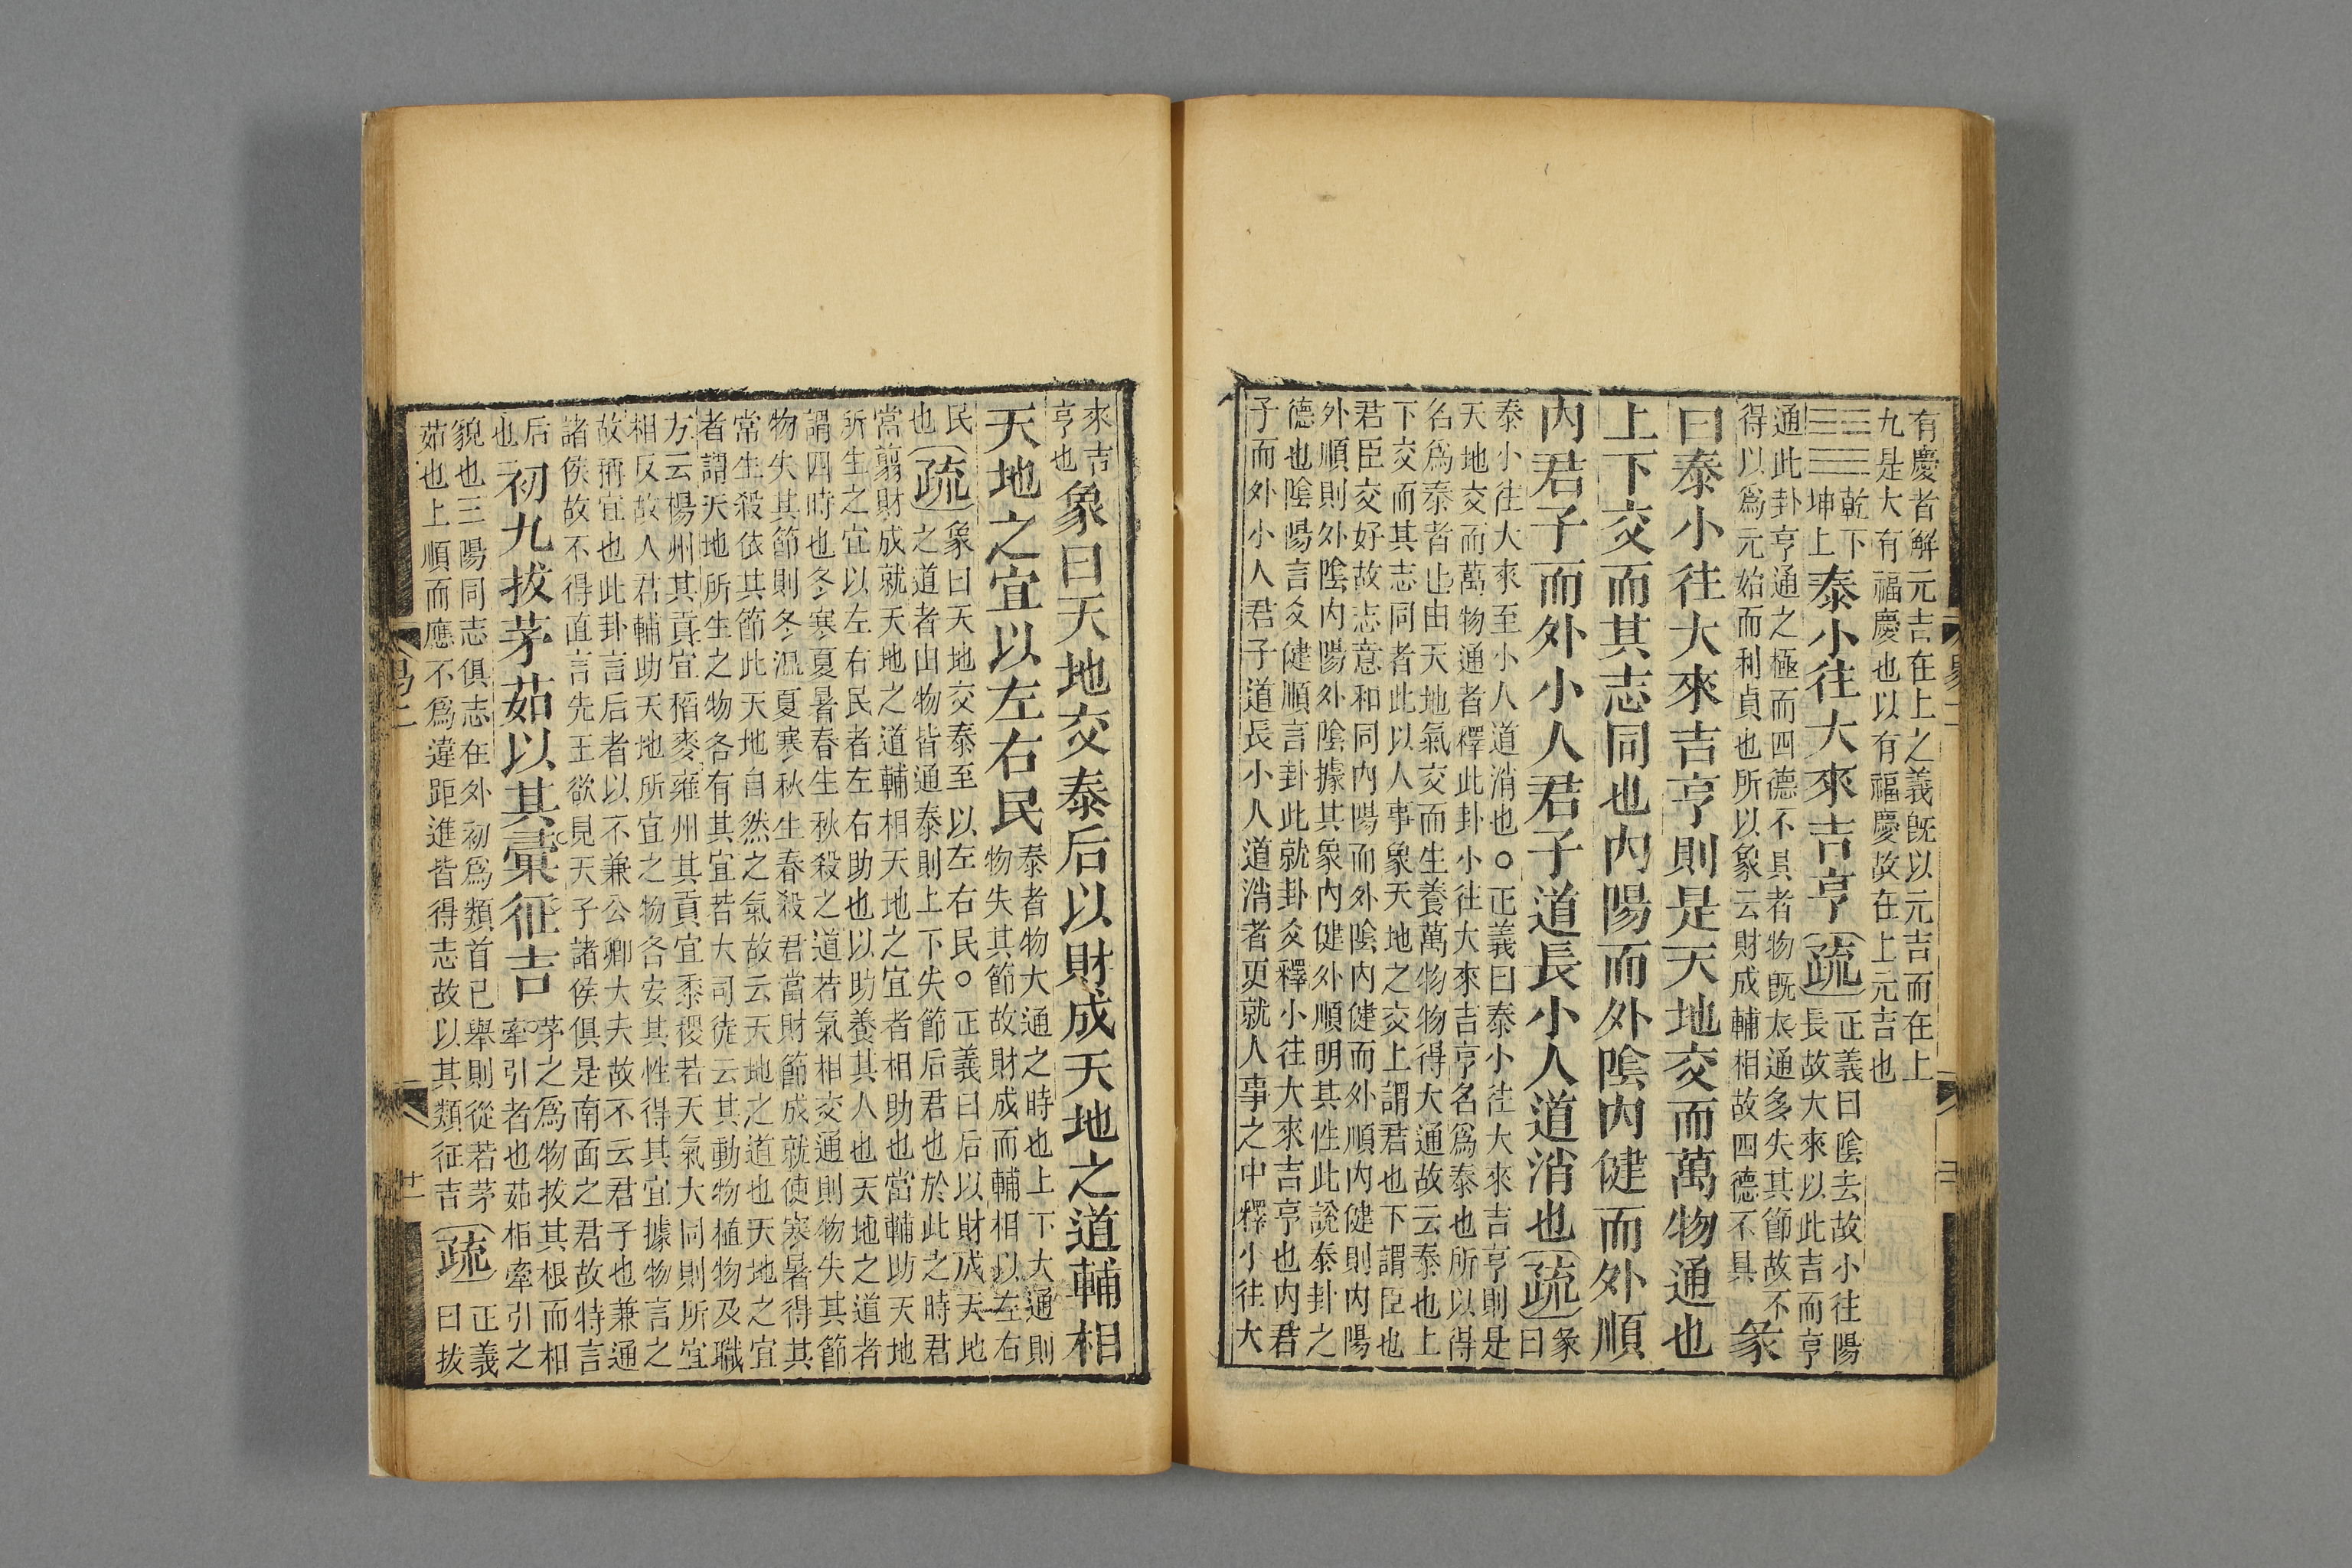 有慶者解元吉在上之義旣以元吉而在上
九是大有福慶也以有福慶故在上元吉也
乾下
坤上
泰小往大來吉亨
疏
正義曰陰去故小往陽
長故大來以此吉而亨
通此卦亨通之極而四德不具者物旣太通多失其節故不
得以爲元始而利貞也所以象云財成輔相故四德不具
彖
曰泰小往大來吉亨則是天地交而萬物通也
上下交而其志同也內陽而外陰內健而外順
內君子而外小人君子道長小人道消也
疏
彖
曰
泰小往大來至小人道消也○正義曰泰小往大來吉亨則是
天地交而萬物通者釋此卦小往大來吉亨名爲泰也所以得
名爲泰者也由天地氣交而生養萬物物得大通故云泰也上
下交而其志同者此以人事象天地之交上謂君也下謂臣也
君臣交好故志意和同內陽而外陰內健而外順內健則內陽
外順則外陰內陽外陰據其象內健外順明其性此說泰卦之
德也陰陽言爻健順言卦此就卦爻釋小往大來吉亨也內君
子而外小人君子道長小人道消者更就人事之中釋小往大
來吉
亨也
象曰天地交泰后以財成天地之道輔相
天地之宜以左右民
泰者物大通之時也上下大通則
物失其節故財成而輔相以左右
民
也
疏
象曰天地交泰至以左右民○正義曰后以財成天地
之道者由物皆通泰則上下失節后君也於此之時君
當翦財成就天地之道輔相天地之宜者相助也當輔助天地
所生之宜以左右民者左右助也以助養其人也天地之道者
謂四時也冬寒夏暑春生秋殺之道若氣相交通則物失其節
物失其節則冬溫夏寒秋生春殺君當財節成就使寒暑得其
常生殺依其節此天地自然之氣故云天地之道也天地之宜
者謂天地所生之物各有其宜若大司徒云其動物植物及職
方云楊州其貢宜稻麥雍州其貢宜黍稷若天氣大同則所宜
相反故人君輔助天地所宜之物各安其性得其宜據物言之
故稱宜也此卦言后者以不兼公卿大夫故不云君子也兼通
諸侯故不得直言先王欲見天子諸侯俱是南面之君故特言
后
也
初九拔茅茹以其彙征吉
茅之爲物拔其根而相
牽引者也茹相牽引之
貌也三陽同志俱志在外初爲類首已舉則從若茅
茹也上順而應不爲違距進皆得志故以其類征吉
疏
正義
曰拔